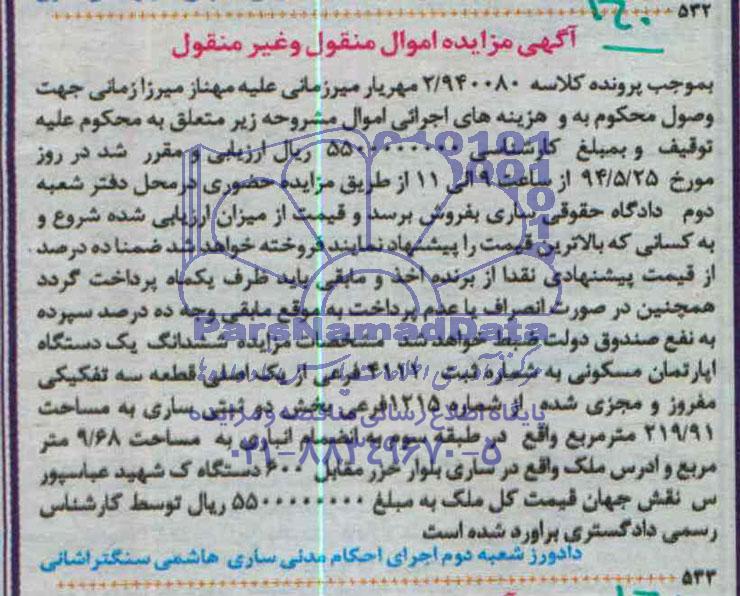 ۵۳۲
۱۴۰
آگهی مزایده اموال منقول وغیر منقول
بموجب پرونده کلاسه ۲/۹۴۰۰۸۰ مهریار میرزمانی علیه مهناز میرزا زمانی جهت
وصول محکوم به و هزینه های اجرائی اموال مشروحه زیر متعلق به محکوم علیه
توقیف و بمبلغ کارشناسی ریال ارزیابی و مقرر شد در روز
مورخ ۹۴/۵/۲۵ از ساعت ۹ الی ۱۱ از طریق مزایده حضوری درمحل دفتر شعبه
دوم دادگاه حقوقی ساری بفروش برسد و قیمت از میزان ارزیابی شده شروع و
به کسانی که بالاترین قیمت را پیشنهاد نمایند فروخته خواهد شد ضمنا ده درصد
از قیمت پیشنهادی نقدا از برنده اخذ و مابقی باید ظرف یکماه پرداخت گردد
همچنین در صورت انصراف یا عدم پرداخت به موقع مابقی وجه ده درصد سپرده
ParsNamadData
به نفع صندوق دولت ضبط خواهد شد مشخصات مزایده ششدانگ یک دستگاه
اپارتمان مسکونی به شماره ثبت فرعی از یک اصلی قطعه سه تفکیکی
مفروز و مجزی شده از شماره ۱۲۱۵فرعی بخش دو ثبتی ساری به مساحت
پایگاه اطلاع رسانی مناقصه و مزایده
۲۱۹/۹۱ مترمربع واقع در طبقه سوم به انضمام انباری به مساحت ۹/۶۸ متر
۰۲۱-۸۸۳۴۹۶۷۰-۵
مربع و ادرس ملک واقع در ساری بلوار خزر مقابل ۶۰۰ دستگاه ک شهید عباسپور
س نقش جهان قیمت کل ملک به مبلغ ۵۵۰۰۰۰۰۰۰۰ ریال توسط کارشناس
رسمی دادگستری براورد شده است
دادورز شعبه دوم اجرای احکام مدنی ساری هاشمی سنگتراشانی
۵۳۳